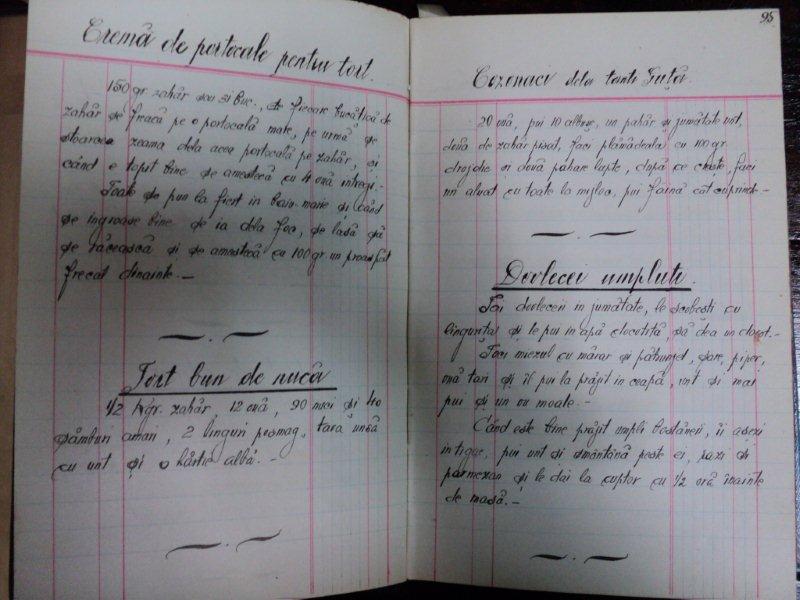 Cremă de portocale pentru tort.
150 gr. zahăr sau și buc., de fiecare bucățică de
zahăr se freacă pe o portocală mare, pe urmă se
stoarcea zeama dela acea portocală pe zahăr, și
când e topit bine se amestecă cu 4 ouă întregi.-
Toate se pun la fiert in bain-marie și când
se ingroașe bine se ia dela foc, se lasă să
se răcească și se amestecă cu 100 gr un proaspăt
frecat dinainte.-
Tort bun de nucă
1/2 kgr. zahăr, 12 ouă, 90 nuci și 40
sâmburi amari, 2 linguri pesmag, tava unsă
cu unt și o hârtie albă.-
95
Cozonaci dela tanti Guță.
20 ouă, pui 10 albușe, un pahar și jumătate unt,
două de zahăr pisat, faci plămădeală cu 100 gr.
drojdie și două pahare lapte, după ce crește, faci
un aluat cu toate la mijloc, pui faină cât cuprinde.-
Dovlecei umpluti.
Tai dovleceii in jumătate, le scobesti cu
lingurița și le pui in apă clocotită, să dea un clocot.-
Toci miezul cu mărar și pătrunjel, sare, piper,
ouă tari și îl pui la prăjit in ceapă, unt și mai
pui și un ou moale.-
Când este bine prăjit umpli bostăneii, îi așezi
in tigae, pui unt și smântână peste ei, razi și
parmezan și le dai la cuptor cu 1/2 oră înainte
de masă.-